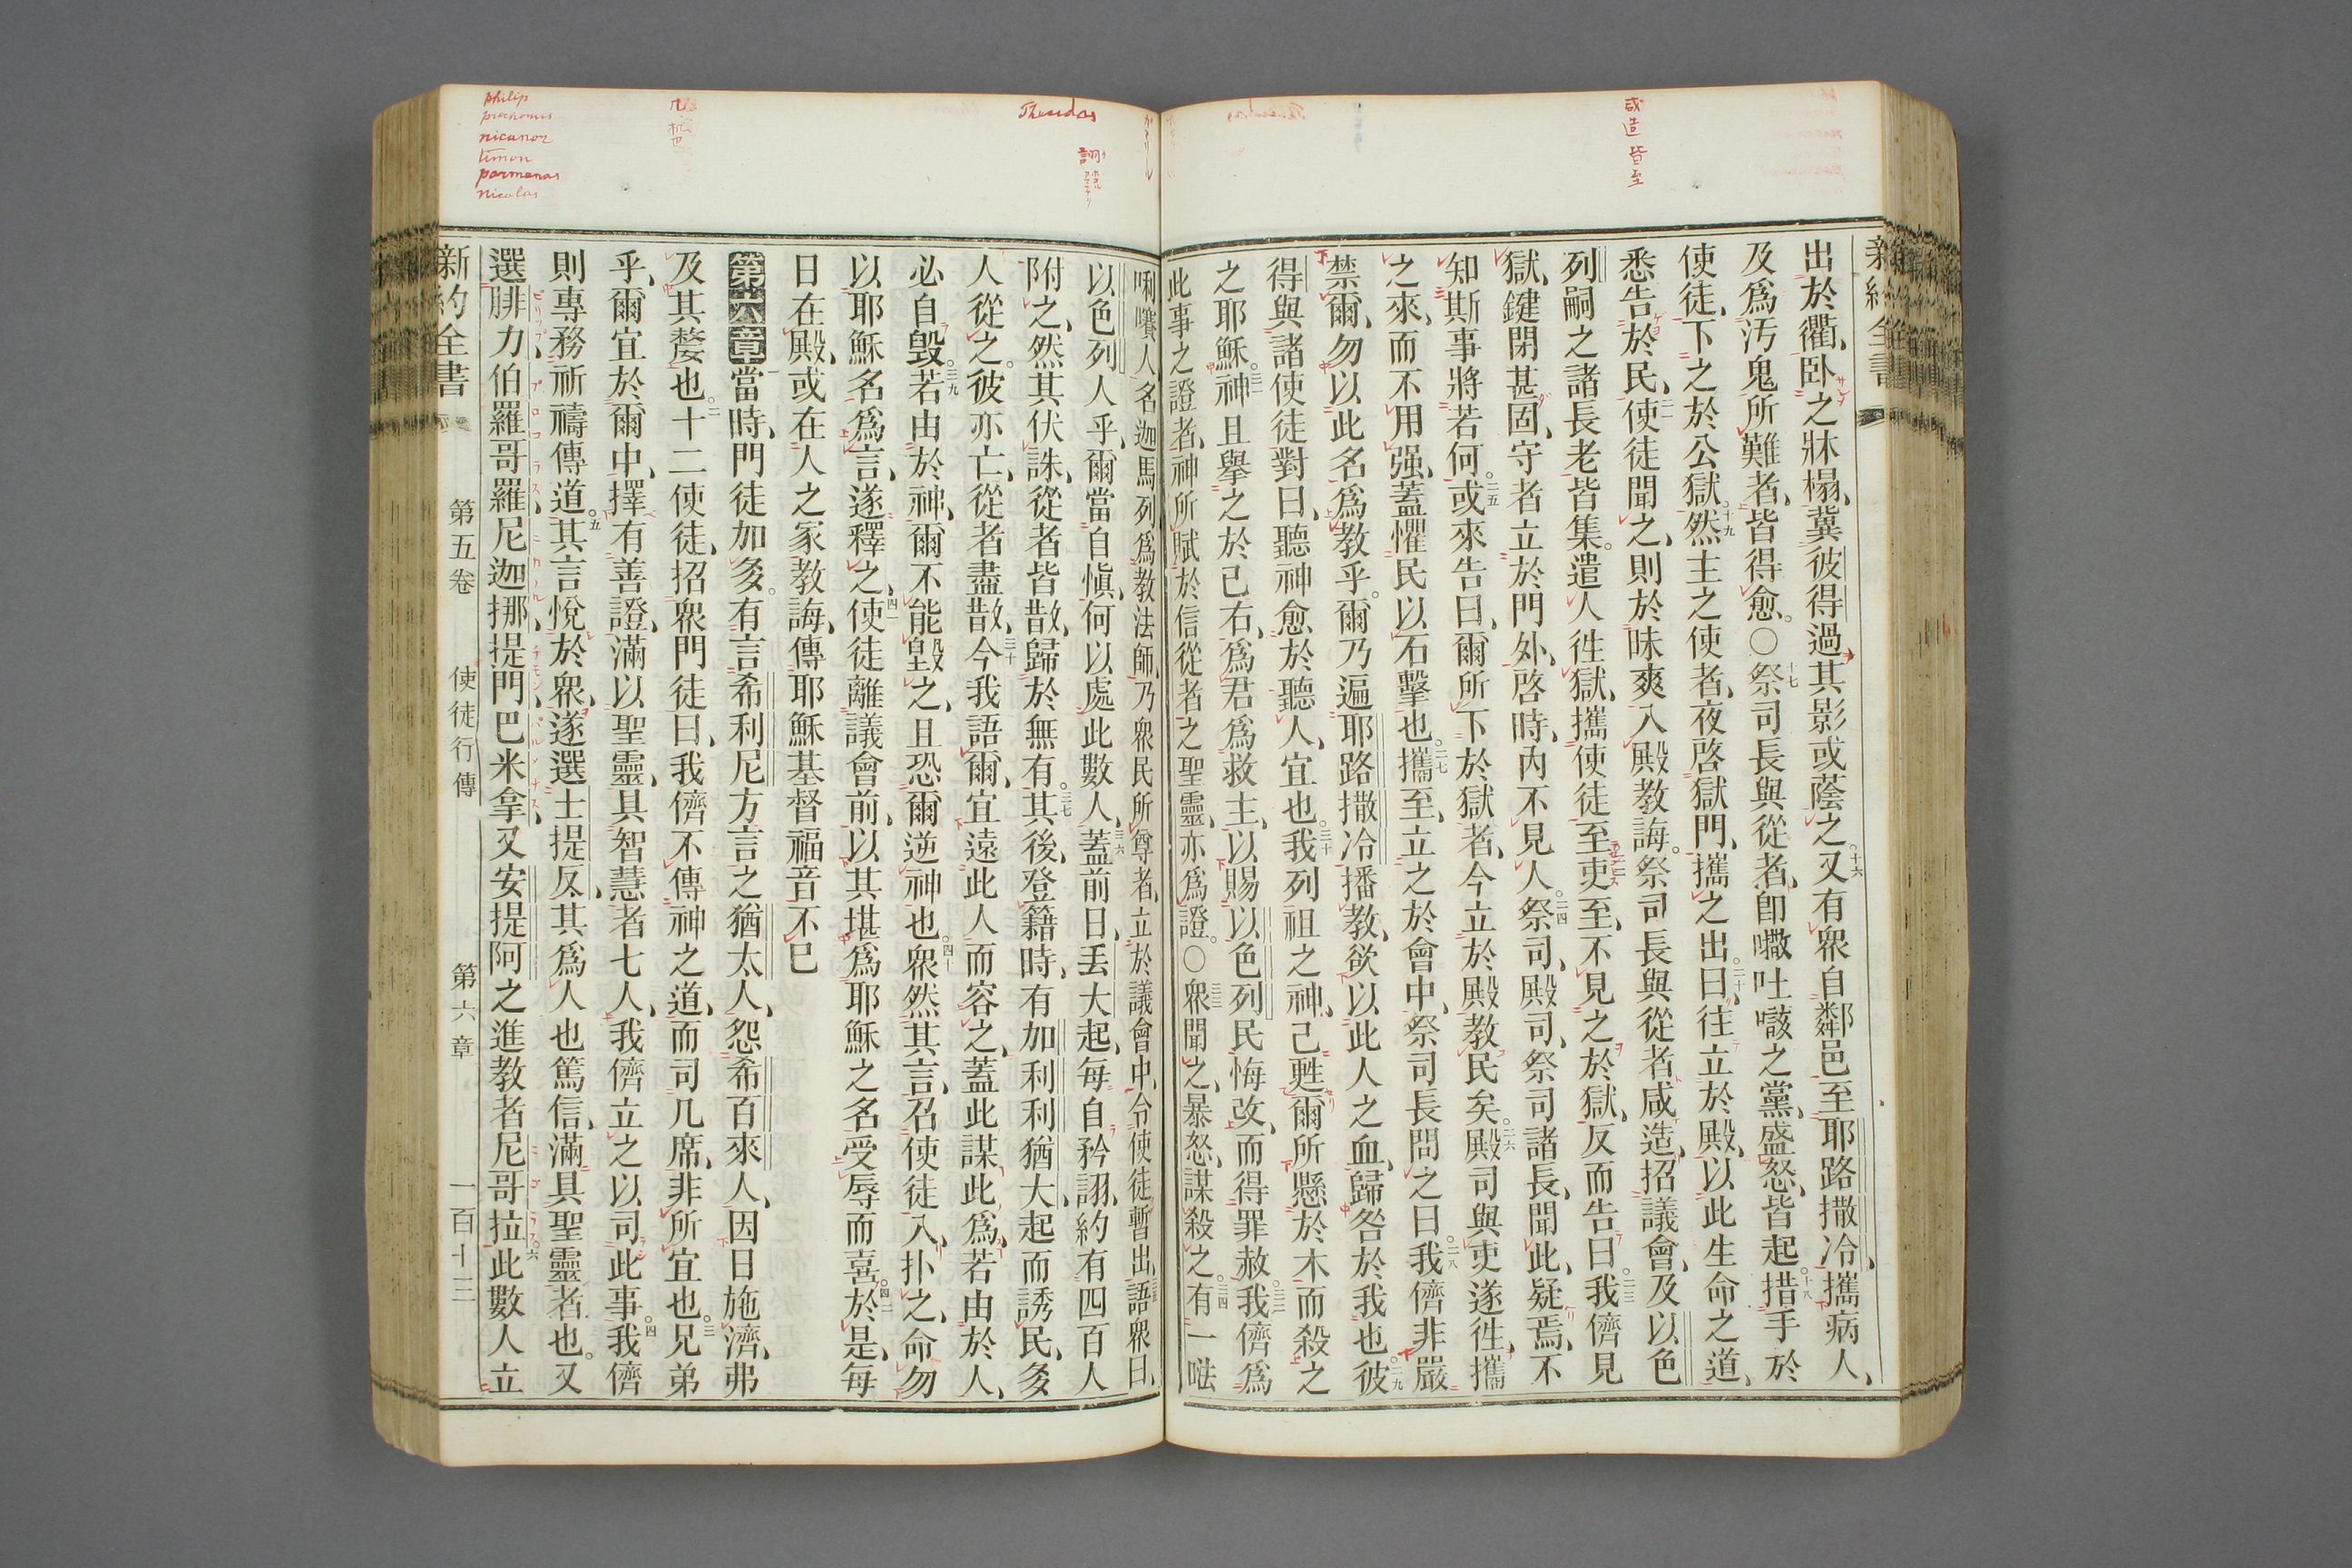 咸造 皆至
出於衢、卧之牀榻、冀彼得過其影或蔭之。十六又有衆自鄰邑至耶路撒冷、攜病人、
及爲汚鬼所難者、皆得愈。〇十七祭司長與從者、卽㘔吐㗥之黨、盛怒、皆起、十八措手於
使徒、下之於公獄。十九然主之使者、夜啓獄門、攜之出、二十曰、往立於殿、以此生命之道、
悉告於民、二一使徒聞之、則於昧爽入殿教誨。祭司長與從者咸造、招議會、及以色
列嗣之諸長老皆集。遣人徃獄、攜使徒至、二二吏至、不見之於獄、反而告曰、二三我儕見
獄、鍵閉甚固、守者立於門外、啓時、內不見人。二四祭司、殿司、祭司諸長、聞此、疑焉、不
知斯事將若何。二五或來告曰、爾所下於獄者、今立於殿教民矣。二六殿司與吏遂徃、攜
之來、而不用强、蓋懼民以石擊也。二七攜至、立之於會中、祭司長問之曰、二八我儕非嚴
禁爾、勿以此名爲教乎。爾乃遍耶路撒冷播教、欲以此人之血、歸咎於我也。二九彼
得與諸使徒對曰、聽神愈於聽人、宜也。三十我列祖之神、已甦爾所懸於木而殺之
之耶穌。三一神且擧之於己右、爲君爲救主、以賜以色列民悔改、而得罪赦。三二我儕爲
此事之證者、神所賦於信從者之聖靈、亦爲證。〇三三衆聞之、暴怒、謀殺之。三四有一㘔
Theudas
詡
唎㘔人、名迦馬列、爲教法師、乃衆民所尊者、立於議會中、令使徒暫出、三五語衆曰、
以色列人乎、爾當自愼、何以處此數人、三六蓋前日、丢大起、每自矜詡、約有四百人
附之、然其伏誅、從者皆散、歸於無有。三七其後、登籍時、有加利利猶大、起而誘民、多
人從之。彼亦亡、從者盡散、三十今我語爾、宜遠此人而容之、蓋此謀此爲、若由於人、
必自毁。三九若由於神、爾不能毀之、且恐爾逆神也。四十衆然其言、召使徒入、扑之、命勿
以耶穌名爲言、遂釋之、四一使徒離議會前、以其堪爲耶穌之名受辱而喜。四二於是、每
日在殿、或在人之家教誨、傳耶穌基督福音不已
第六章一當時、門徒加多。有言希利尼方言之猶太人、怨希百來人、因日施濟、弗
及其嫠也。二十二使徒、招衆門徒曰、我儕不傳神之道、而司几席、非所宜也。三兄弟
乎、爾宜於爾中、擇有善證、滿以聖靈、具智慧者七人、我儕立之以司此事。四我儕
則專務祈禱傳道。五其言悅於衆、遂選士提反、其爲人也篤信、滿具聖靈者也。又
選腓力、伯羅哥羅、尼迦挪、提門、巴米拿、又安提阿之進教者尼哥拉。六此數人、立
philip
prochorus
nicanor
timon
parmenas
nicolas
新約全書 第五卷 使徒行傳 第六章 一百十三